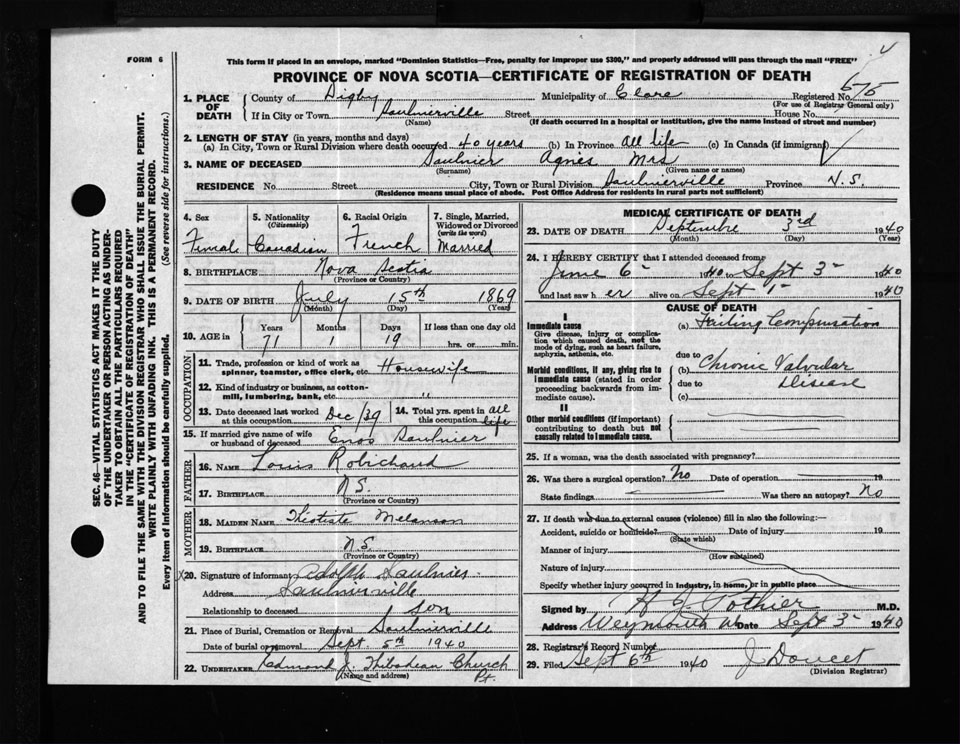 FORM 6
This form if placed in an envelope, marked "Dominion Statistics—Free, penalty for improper use $300," and properly addressed will pass through the mail "FREE"
PROVINCE OF NOVA SCOTIA—CERTIFICATE OF REGISTRATION OF DEATH
SEC. 46—VITAL STATISTICS ACT MAKES IT THE DUTY
OF THE UNDERTAKER OR PERSON ACTING AS UNDER-
TAKER TO OBTAIN ALL THE PARTICULARS REQUIRED
IN THE "CERTIFICATE OF REGISTRATION OF DEATH"
AND TO FILE THE SAME WITH THE DIVISION REGISTRAR WHO SHALL ISSUE THE BURIAL PERMIT.
WRITE PLAINLY WITH UNFADING INK. THIS IS A PERMANENT RECORD.
Every item of information should be carefully supplied. (See reverse side for instructions.)
1. PLACE OF DEATH
County of Digby Municipality of Clare Registered No. 675
(For use of Registrar General only)
If in City or Town Saulnierville Street House No.
(Name) (If death occurred in a hospital or institution, give the name instead of street and number)
2. LENGTH OF STAY (in years, months and days)
(a) In City, Town or Rural Division where death occurred 40 years (b) In Province all life (c) In Canada (if immigrant)
3. NAME OF DECEASED Saulnier Agnes Mrs
(Surname) (Given name or names)
RESIDENCE No. Street City, Town or Rural Division Saulnierville Province N.S.
(Residence means usual place of abode. Post Office Address for Residents in rural parts not sufficient)
4. Sex Female
5. Nationality (Citizenship) Canadian
6. Racial Origin French
7. Single, Married, Widowed or Divorced (write the word) Married
8. BIRTHPLACE Nova Scotia
(Province or Country)
9. DATE OF BIRTH July 15th 1869
(Month) (Day) (Year)
10. AGE in Years 71 Months 1 Days 19 If less than one day old hrs. or min.
OCCUPATION
11. Trade, profession or kind of work as spinner, teamster, office clerk, etc. Housewife
12. Kind of industry or business, as cotton-mill, lumbering, bank, etc. "
13. Date deceased last worked at this occupation Dec/39
14. Total yrs. spent in this occupation all life
15. If married give name of wife or husband of deceased Enos Saulnier
FATHER
16. NAME Louis Robichaud
17. BIRTHPLACE N.S.
(Province or Country)
MOTHER
18. MAIDEN NAME Thotiste Melanson
19. BIRTHPLACE N.S.
(Province or Country)
X20. Signature of informant Adolph Saulnier
Address Saulnierville
Relationship to deceased Son
21. Place of Burial, Cremation or Removal Saulnierville
Date of burial or removal Sept. 5th 1940
22. UNDERTAKER Edmond J. Thibodeau Church Pt.
(Name and address)
MEDICAL CERTIFICATE OF DEATH
23. DATE OF DEATH Septembre 3rd 1940
(Month) (Day) (Year)
24. I HEREBY CERTIFY that I attended deceased from
June 6 1940 to Sept 3 1940
and last saw h er alive on Sept 1 1940
CAUSE OF DEATH
I
Immediate cause (a) Failing Compensation
Give disease, injury or complication which caused death, not the mode of dying, such as heart failure, asphyxia, asthenia, etc.
due to
Morbid conditions, if any, giving rise to immediate cause (stated in order proceeding backwards from immediate cause).
(b) Chronic Valvular
due to Disease
(c)
II
Other morbid conditions (if important) contributing to death but not causally related to immediate cause.
25. If a woman, was the death associated with pregnancy?
26. Was there a surgical operation? No Date of operation 19
State findings Was there an autopsy? No
27. If death was due to external causes (violence) fill in also the following:—
Accident, suicide or homicide? Date of injury 19
(State which)
Manner of injury
(How sustained)
Nature of injury
Specify whether injury occurred in industry, in home, or in public place
Signed by Pothier M.D.
Address Weymouth Date Sept 3 1940
28. Registrar's Record Number
29. Filed Sept 6th 1940 J Doucet
(Division Registrar)